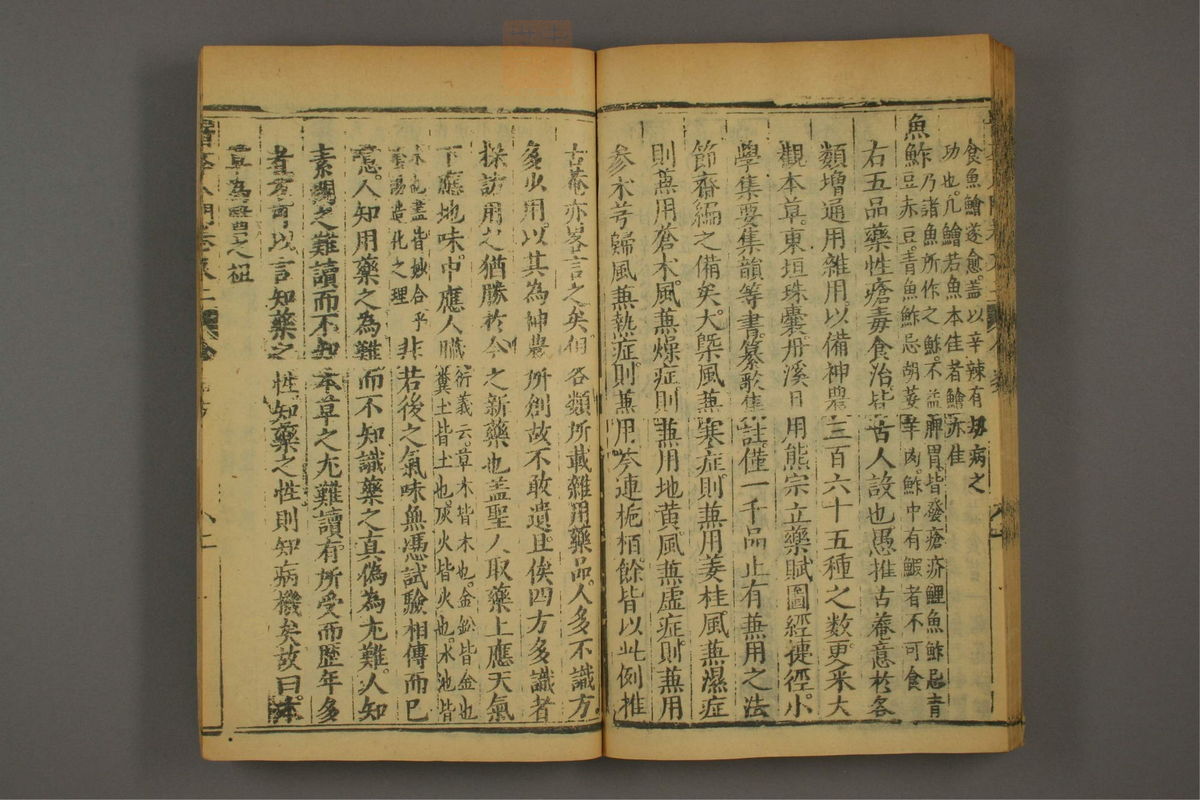 食魚鱠遂愈蓋以辛辣有刼病之
功也凡鱠若魚本佳者鱠亦佳
魚鮓乃諸魚所作之鮓不益脾胃皆發瘡疥鯉魚鮓忌青
豆赤豆青魚鮓忌胡荽羊肉鮓中有鰕者不可食
右五品藥性瘡毒食治皆古人設也愚推古菴意於各
類增通用雜用以備神農三百六十五種之數更采大
觀本草東垣珠囊丹溪日用熊宗立藥賦圖經捷徑小
學集要集韻等書纂歌集註僅一千品止有兼用之法
節齋編之備矣大槩風兼寒症則兼用姜桂風兼濕症
則兼用蒼朮風兼燥症則兼用地黃風兼虛症則兼用
參朮芎歸風兼熱症則兼用芩連梔栢餘皆以此例推
古菴亦畧言之矣但各類所載雜用藥品人多不識方
多少用以其為神農所創故不敢遺且俟四方多識者
採訪用之猶勝於今之新藥也蓋聖人取藥上應天氣
下應地味中應人臟衍義云草木皆木也金鈆皆金也
糞土皆土也灰火皆火也水池皆
水也盡皆妙合乎
陰陽造化之理非若後之氣味無憑試驗相傳而已
意人知用藥之為難而不知識藥之真偽為尤難人知
素問之難讀而不知本草之尤難讀有所受而歷年多
者方可以言知藥之性知藥之性則知病機矣故曰本
草為醫之祖